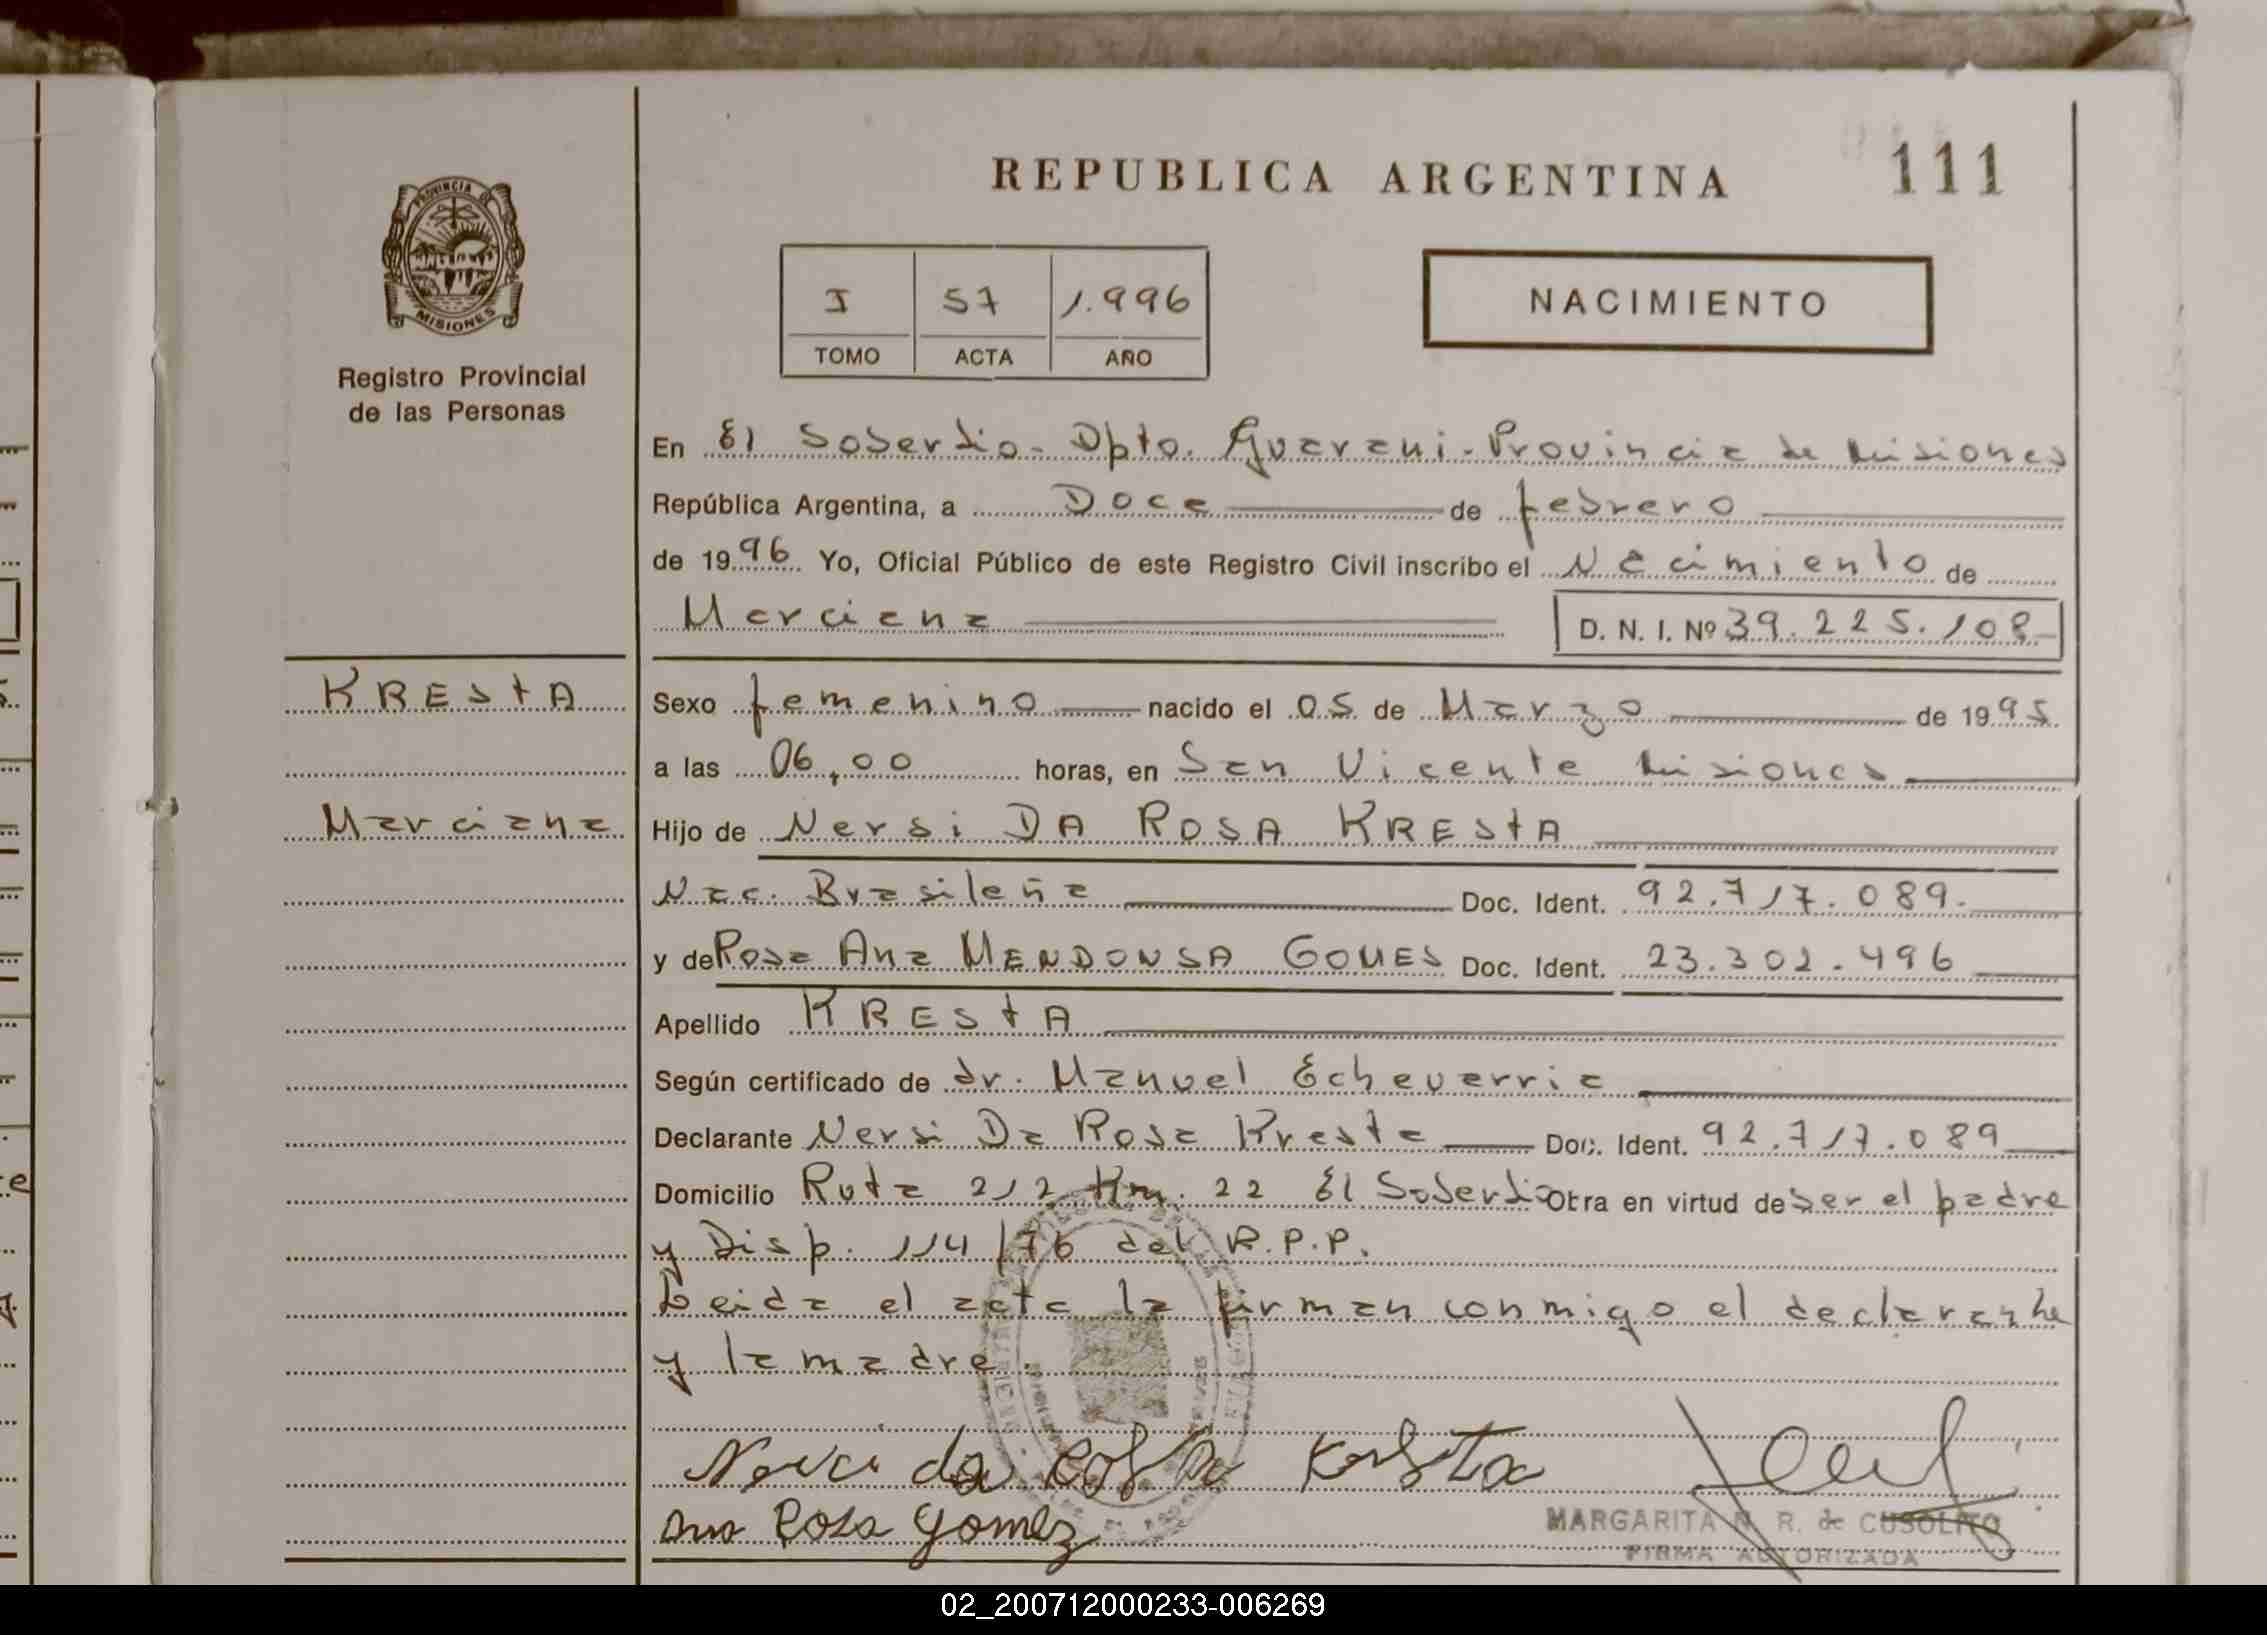 REPUBLICA ARGENTINA 111
PROVINCIA DE
MISIONES
Registro Provincial
de las Personas
I 57 1.996
TOMO ACTA AÑO
NACIMIENTO
En El Soberbio - Dpto. Guarani - Provincia de Misiones
República Argentina, a Doce de febrero
de 1996 Yo, Oficial Público de este Registro Civil inscribo el Nacimiento de
Marciana D. N. I. Nº 39.225.108
KRESTA
Sexo femenino nacido el 05 de Marzo de 1995
a las 06,00 horas, en San Vicente Misiones
Marciana
Hijo de Nersi DA ROSA KRESTA
Nac. Brasileña Doc. Ident. 92.717.089.
y de Rosa Ana MENDONSA GOMES Doc. Ident. 23.302.496
Apellido KRESTA
Según certificado de dr. Manuel Echeverria
Declarante Nersi Da Rosa Kresta Doc. Ident. 92.717.089
Domicilio Ruta 212 Km. 22 El Soberbio Obra en virtud de ser el padre
y Disp. 114/76 del R.P.P.
Leida el acta la firman conmigo el declarante
y la madre.
da Rosa
Ana Rosa Gomez
MARGARITA N. R. de CUSOLITO
FIRMA AUTORIZADA
02_200712000233-006269